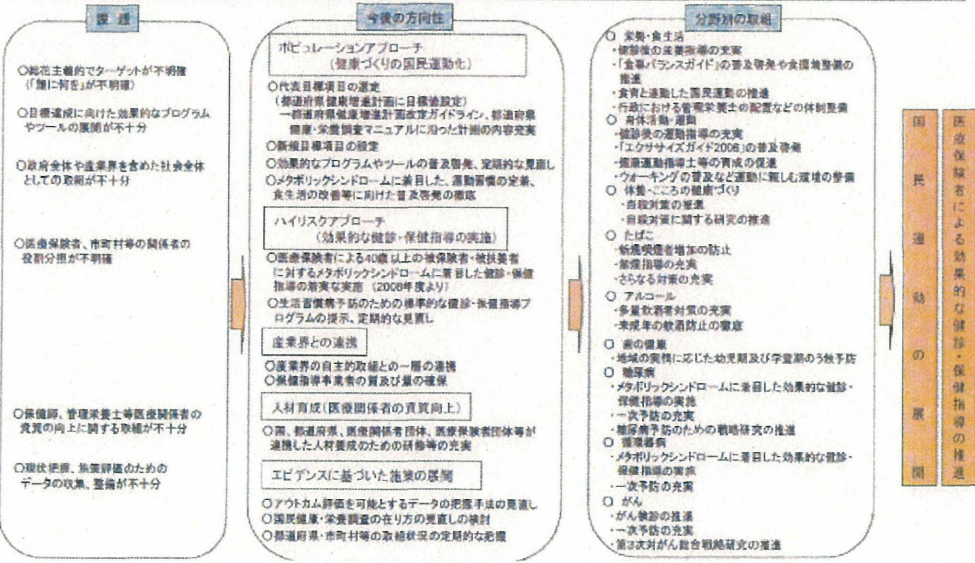 課題
○総花主義的でターゲットが不明確
(「誰に何を」が不明確)
○目標達成に向けた効果的なプログラム
やツールの展開が不十分
○政府全体や産業界を含めた社会全体
としての取組が不十分
○医療保険者、市町村等の関係者の
役割分担が不明確
○保健師、管理栄養士等医療関係者の
資質の向上に関する取組が不十分
○現状把握、施策評価のための
データの収集、整備が不十分
今後の方向性
ポピュレーションアプローチ
(健康づくりの国民運動化)
○代表目標項目の選定
(都道府県健康増進計画に目標値設定)
→都道府県健康増進計画改定ガイドライン、都道府県
健康・栄養調査マニュアルに沿った計画の内容充実
○新規目標項目の設定
○効果的なプログラムやツールの普及啓発、定期的な見直し
○メタボリックシンドロームに着目した、運動習慣の定着、
食生活の改善等に向けた普及啓発の徹底
ハイリスクアプローチ
(効果的な健診・保健指導の実施)
○医療保険者による40歳以上の被保険者・被扶養者
に対するメタボリックシンドロームに着目した健診・保健
指導の着実な実施 (2008年度より)
○生活習慣病予防のための標準的な健診・保健指導プ
ログラムの提示、定期的な見直し
産業界との連携
○産業界の自主的取組との一層の連携
○保健指導事業者の質及び量の確保
人材育成(医療関係者の資質向上)
○国、都道府県、医療関係者団体、医療保険者団体等が
連携した人材養成のための研修等の充実
エビデンスに基づいた施策の展開
○アウトカム評価を可能とするデータの把握手法の見直し
○国民健康・栄養調査の在り方の見直しの検討
○都道府県・市町村等の取組状況の定期的な把握
分野別の取組
○ 栄養・食生活
・健診後の栄養指導の充実
・「食事バランスガイド」の普及啓発や食環境整備の
推進
・食育と連動した国民運動の推進
・行政における管理栄養士の配置などの体制整備
○ 身体活動・運動
・健診後の運動指導の充実
・「エクササイズガイド2006」の普及啓発
・健康運動指導士等の育成の促進
・ウォーキングの普及など運動に親しむ環境の整備
○ 休養・こころの健康づくり
・自殺対策の推進
・自殺対策に関する研究の推進
○ たばこ
・新規喫煙者増加の防止
・禁煙指導の充実
・さらなる対策の充実
○ アルコール
・多量飲酒者対策の充実
・未成年の飲酒防止の徹底
○ 歯の健康
・地域の実情に応じた幼児期及び学童期のう蝕予防
○ 糖尿病
・メタボリックシンドロームに着目した効果的な健診・
保健指導の実施
・一次予防の充実
・糖尿病予防のための戦略研究の推進
○ 循環器病
・メタボリックシンドロームに着目した効果的な健診・
保健指導の実施
・一次予防の充実
○ がん
・がん検診の推進
・一次予防の充実
・第3次対がん総合戦略研究の推進
国民運動の展開
医療保険者による効果的な健診・保健指導の推進